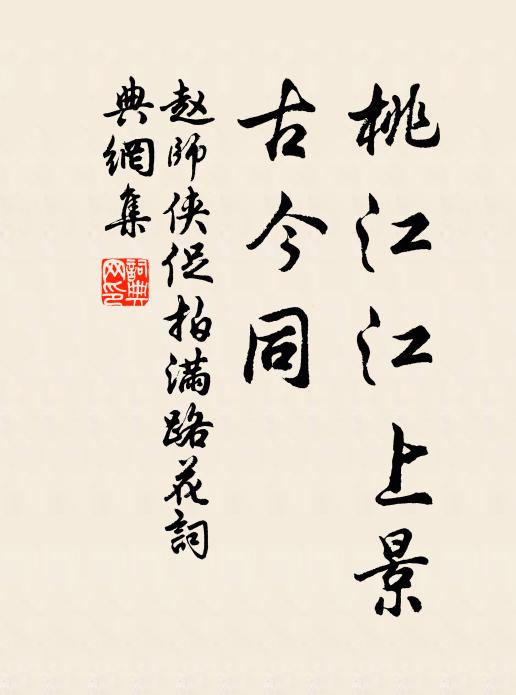 桃江江上景
古今同
赵師侠促拍满路花詞
典網集
詞典网印